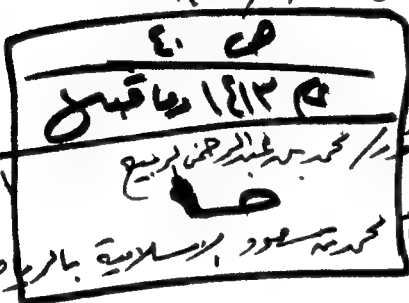 ص ٤٠
م ١٤١٣ وما قبل
محمد بن عبدالرحمن الربيع
محمد بن سعود الإسلامية بالرياض